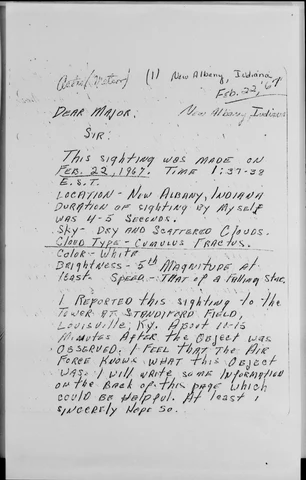 Astro (Meteor) (1) New Albany, Indiana
Feb. 22, '67
Dear Major: New Albany Indiana
Sir:
This sighting was made on
Feb. 22, 1967. Time 1:37-38
E.S.T.
Location - New Albany, Indiana
Duration of sighting by myself
was 4-5 seconds.
Sky - Dry and Scattered Clouds.
Cloud Type - Cumulus Fractus.
Color - White
Brightness - 5th Magnitude at
least. Speed - That of a falling star.
I reported this sighting to the
Tower at Standiford Field,
Louisville, Ky. About 10-15
minutes after the object was
observed. I feel that the Air
Force knows what this object
was. I will write some information
on the back of this page which
could be helpful. At least I
sincerely hope so.